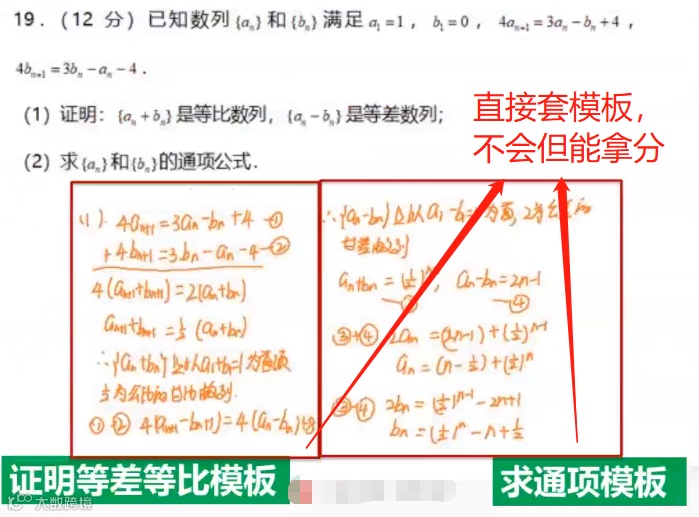 19．（12 分）已知数列{aₙ}和{bₙ}满足 a₁=1，b₁=0，4aₙ₊₁=3aₙ-bₙ+4，
4bₙ₊₁=3bₙ-aₙ-4．
（1）证明：{aₙ+bₙ}是等比数列，{aₙ-bₙ}是等差数列；
（2）求{aₙ}和{bₙ}的通项公式．
直接套模板，
不会但能拿分
(1). 4aₙ₊₁=3aₙ-bₙ+4 ①
+4bₙ₊₁=3bₙ-aₙ-4 ②
4(aₙ₊₁+bₙ₊₁)=2(aₙ+bₙ)
aₙ₊₁+bₙ₊₁=½(aₙ+bₙ)
∴{aₙ+bₙ}是以a₁+b₁=1为首项
½为公比的等比数列.
①-② 4(aₙ₊₁-bₙ₊₁)=4(aₙ-bₙ)+8
∴{aₙ-bₙ}是以a₁-b₁=为首，2为公差的
等差数列
aₙ+bₙ=(½)ⁿ，aₙ-bₙ=2n-1
③ ④
③+④ 2aₙ=(2n-1)+(½)ⁿ⁻¹
aₙ=(n-½)+(½)ⁿ
③-④ 2bₙ=(½)ⁿ⁻¹-2n+1
bₙ=(½)ⁿ-n+½
证明等差等比模板
求通项模板
大数跨境